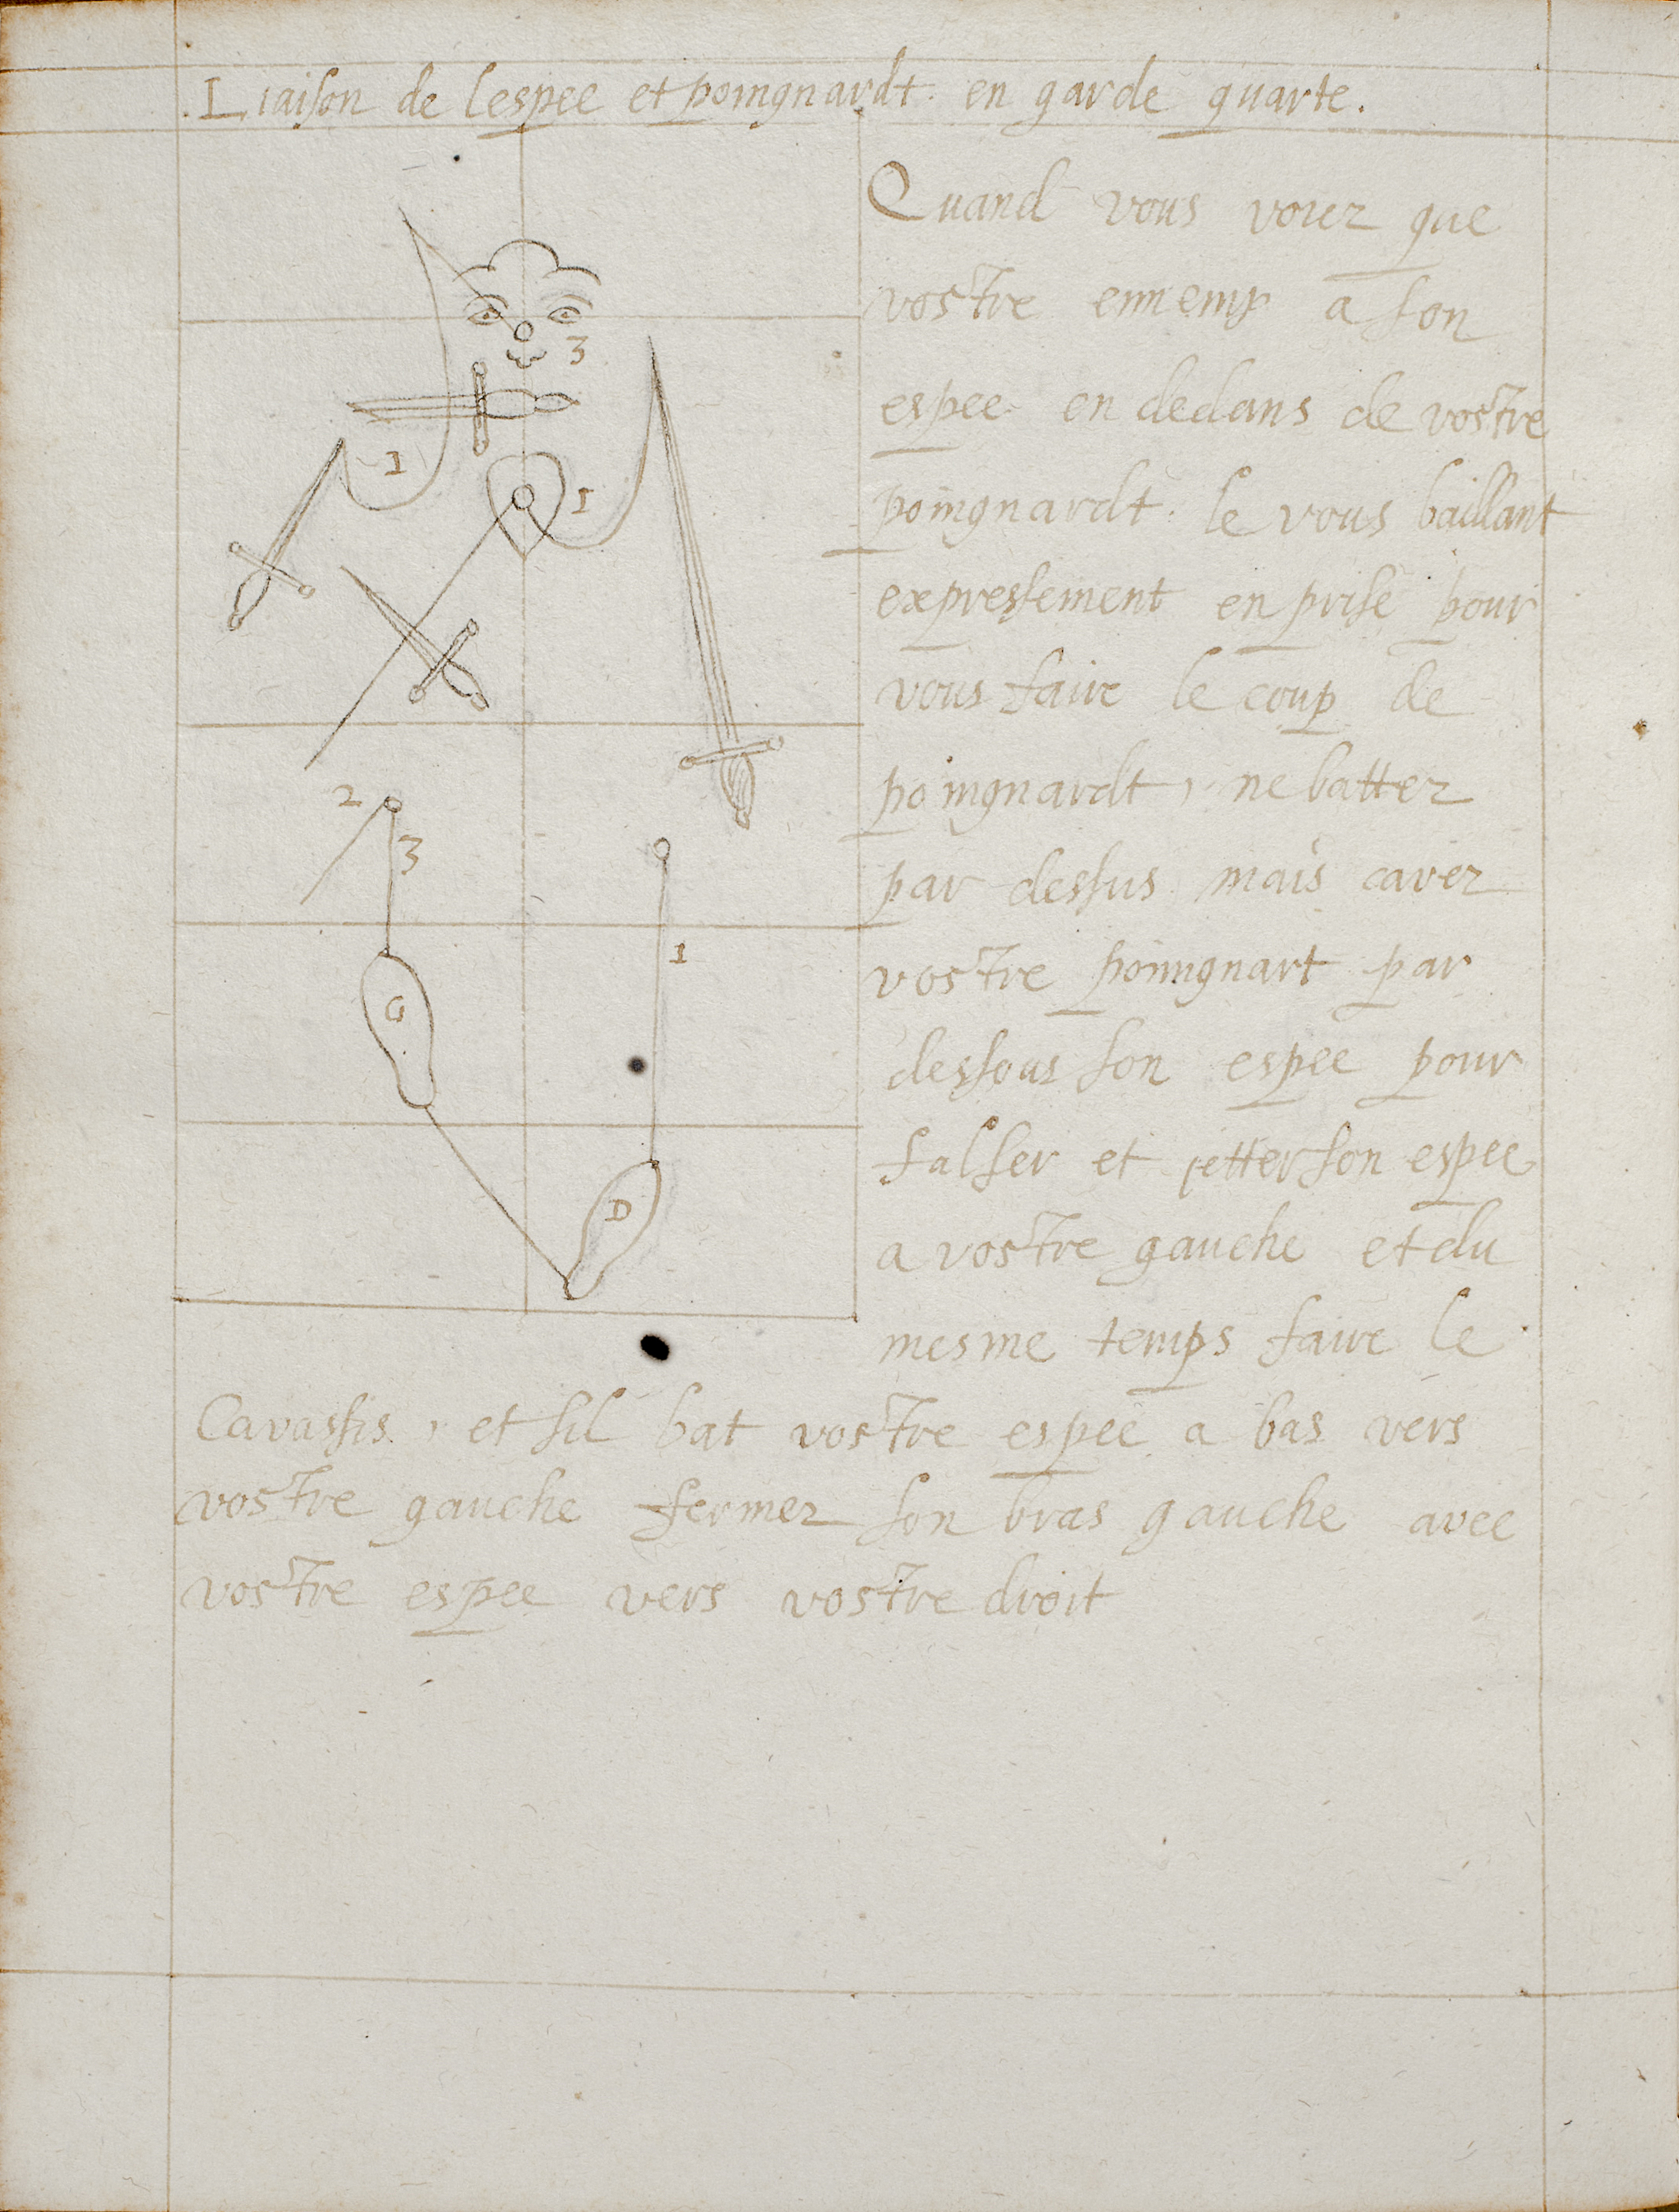 Liaison de lespee et poingnardt en garde quarte.
Quand vous voiez que
vostre ennemy a son
espee en dedans de vostre
poingnardt le vous baillant
expressement en prise pour
vous faire le coup de
poingnardt, ne batter
par dessus mais caver
vostre poingnart par
dessous son espee pour
falser et jetter son espee
a vostre gauche et du
mesme temps faire le
Cavassis, et sil bat vostre espee a bas vers
vostre gauche fermer son bras gauche avec
vostre espee vers vostre droit
3
1
1
2
3
1
G
D